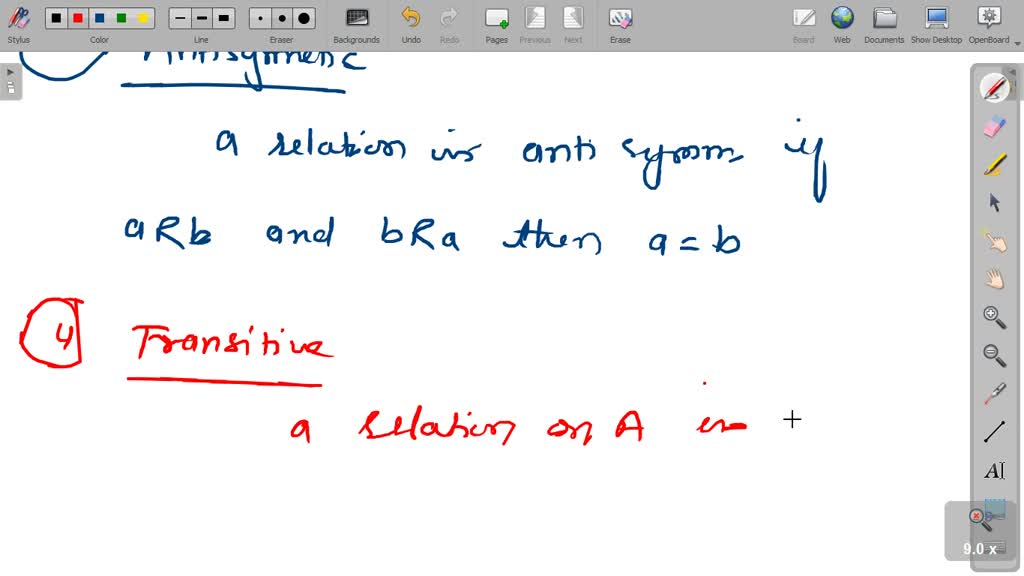 Stylus Color Line Eraser Backgrounds Undo Redo Pages Previous Next Erase Board Web Documents Show Desktop OpenBoard
Antisymmetric
a relation is anti symm. if
aRb and bRa then a = b
4 Transitive
a relation on A is
AI
9.0 x